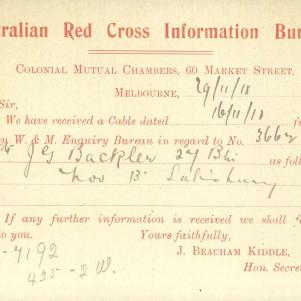 ralian Red Cross Information Bu
Colonial Mutual Chambers, 60 Market Street,
Melbourne, 29/11/18
Sir,
We have received a Cable dated 16/11/18
W. & M. Enquiry Bureau in regard to No. 3662
J G Backpler 27 Bn as fol
Nov 13 Salisbury
If any further information is received we shall f
to you. Yours faithfully,
J. Beacham Kiddle,
Hon. Secre